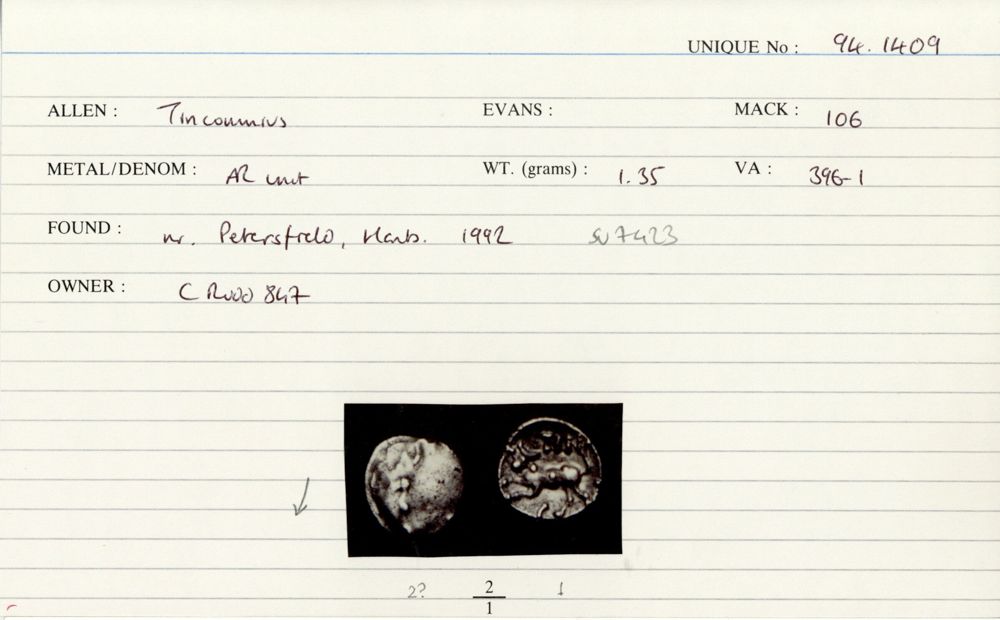 UNIQUE No : 94.1409
ALLEN : Tincommius EVANS : MACK : 106
METAL/DENOM : AR unit WT. (grams) : 1.35 VA : 396-1
FOUND : nr. Petersfield, Hants. 1992 SU 7423
OWNER : C Rudd 847
2? 2/1 1